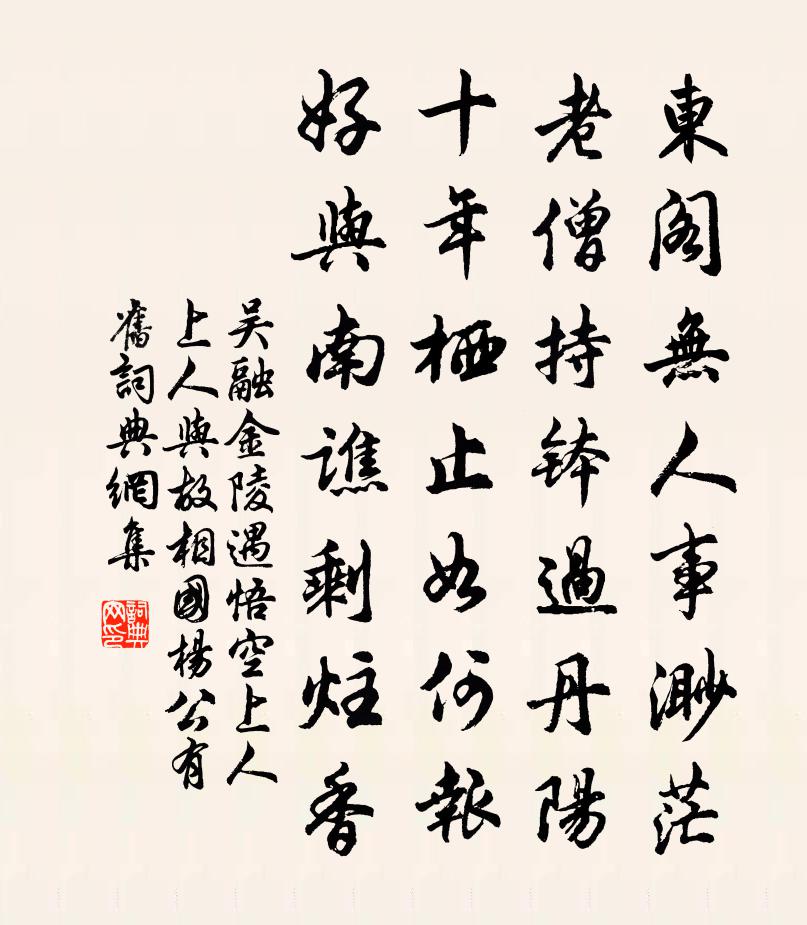 東閣無人事渺茫
老僧持鉢過丹陽
十年栖止如何報
好與南譙剩炷香
吴融金陵遇悟空上人
上人與故相國楊公有
舊詞典網集
詞典网印